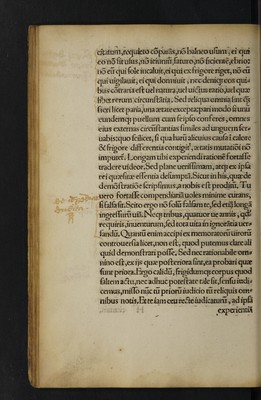 citatum, neq; læto cōpastis, nō balneo usum, ei qui
eo nō sit usus, nō ieiunū, saturo, nō sicientē, ebrio:
nō eū qui sole incaluit, ei qui ex frigore riget, nō eū
qui uigilauit, ei qui dormiuit, nec deniq; eos quibus
cōtraria est uel natura, uel uictus ratio, uel quæ
libet rerum circūstātia. Sed reliqua omnia sint q̄
fieri licet paria, una ætate excepta: pari modo si unū
eundemq; puellum cum seipso conferes, omnes
eius externas circūstantias similes ad unguem
si qua harū alicuius causa
& frigore differentia contigit, ætatis mutatiōi nō
imputes. Longam tibi experiendi rationē
tradere uideor. Sed planè uerissimam, atq; ex ipsa
rei quæsitæ essentia desumptā. Sicut in his, quæ de
demōstratiōe scripsimus, a nobis est proditū. Tu
uero fortasse compendiariā uoles
si falsa sit. Scito ergo nō solū falsam te, sed etiā longā
ingressurū uiā. Neq; tribus, quatuorue annis, qd'
requiris, inuenturum, sed tota uita in ignorātia
Quantū enim accipi ex memoratorū uirorū
controuersia licet, non est, quod putemus dare ali
quid demonstrari posse. Sed nec rationabile omnino
est, ex ijs quæ posteriora sint, ea probari quæ
sunt priora. Ergo calidū, frigidumq; corpus quod
saltem actu, nec adhuc potestate tale sit, sensu iudicemus,
missō nūc tū priorū iudicio tū reliquis omnibus
notis. Et te iam ceu recte iudicaturū, ad ipsa
experientiā